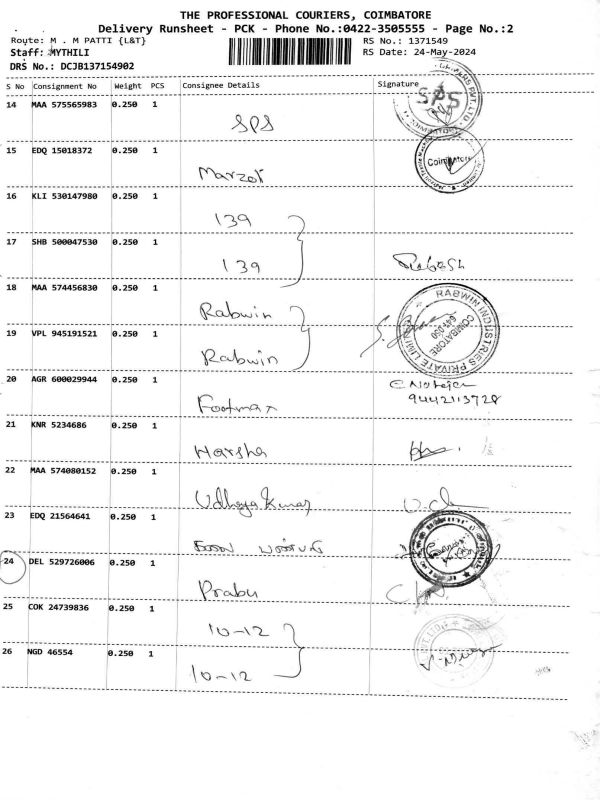 THE PROFESSIONAL COURIERS, COIMBATORE
Delivery Runsheet - PCK - Phone No.:0422-3505555 - Page No.:2
Route: M . M PATTI {L&T}
RS No.: 1371549
Staff: MYTHILI
RS Date: 24-May-2024
DRS No.: DCJB137154902
S No Consignment No Weight PCS Consignee Details Signature
14 MAA 575565983 0.250 1
SPS
SPS
15 EDQ 15018372 0.250 1
Coimbatore
Marzot
16 KLI 530147980 0.250 1
139
17 SHB 500047530 0.250 1
139
18 MAA 574456830 0.250 1
Rabwin
RABWIN INDUSTRIES PRIVATE LIMITED
COIMBATORE
641-050
19 VPL 945191521 0.250 1
Rabwin
20 AGR 600029944 0.250 1
9442113728
Footmax
21 KNR 5234686 0.250 1
Harsha
22 MAA 574080152 0.250 1
Udhaya Kumar
23 EDQ 21564641 0.250 1
24 DEL 529726006 0.250 1
Prabu
25 COK 24739836 0.250 1
10-12
26 NGD 46554 0.250 1
10-12